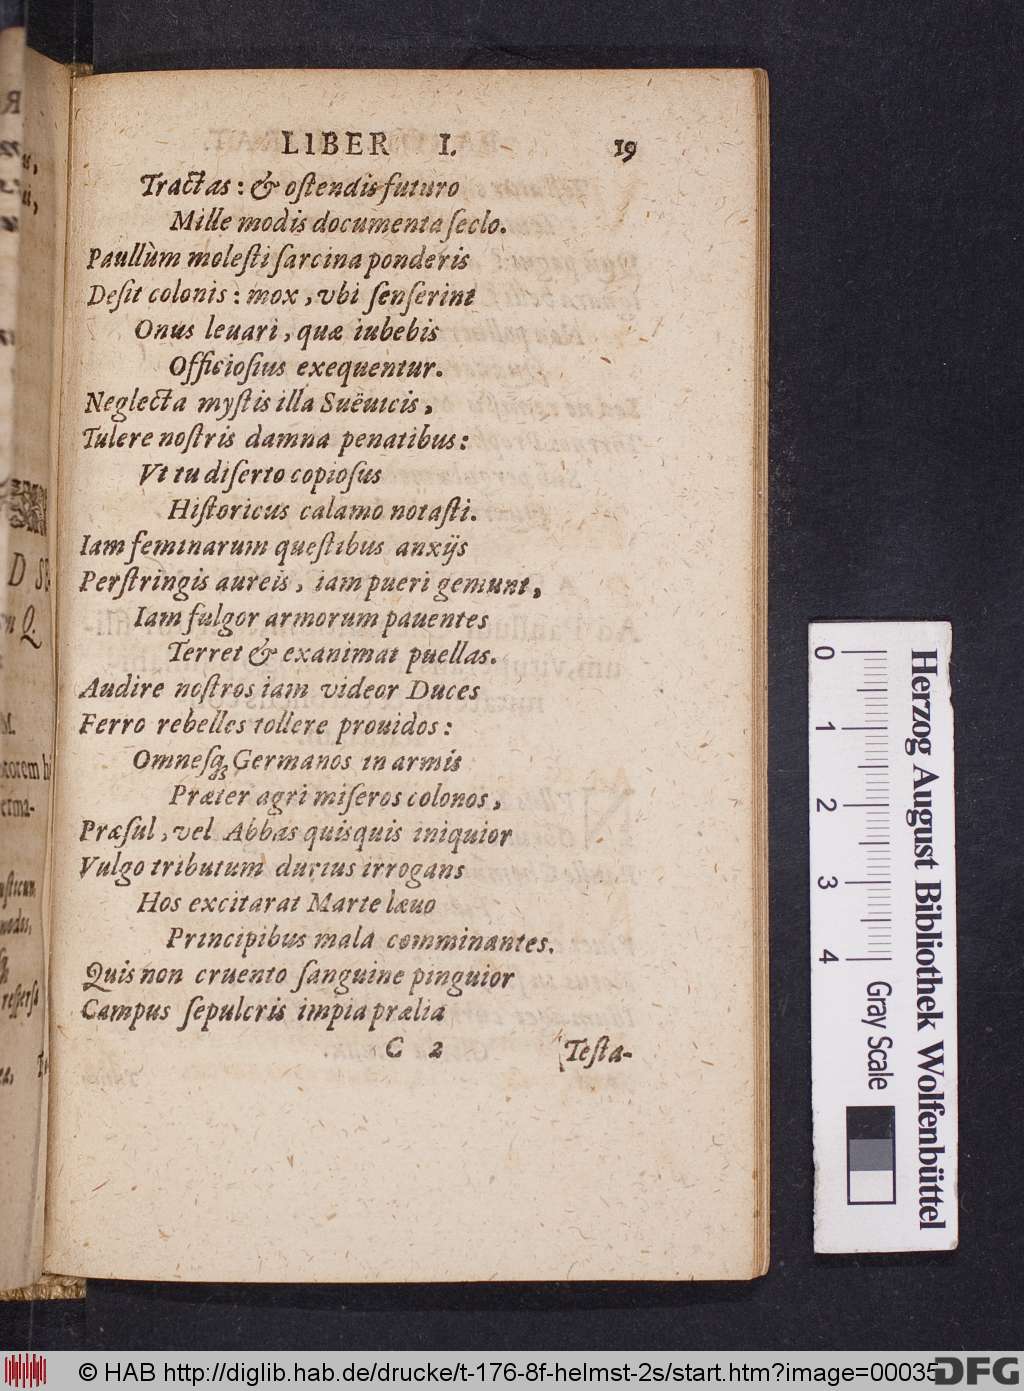 LIBER I. 19
Tractas: & oſtendis futuro
Mille modis documenta ſeclo.
Paullùm moleſti ſarcina ponderis
Deſit colonis: mox, vbi ſenſerint
Onus leuari, quæ iubebis
Officioſius exequentur.
Neglecta myſtis illa Suëuicis,
Tulere noſtris damna penatibus:
Vt tu diſerto copioſus
Hiſtoricus calamo notaſti.
Iam feminarum queſtibus anxijs
Perſtringis aureis, iam pueri gemunt,
Iam fulgor armorum pauentes
Terret & exanimat puellas.
Audire noſtros iam videor Duces
Ferro rebelles tollere prouidos:
Omneſq; Germanos in armis
Præter agri miſeros colonos,
Præſul, vel Abbas quisquis iniquior
Vulgo tributum durius irrogans
Hos excitarat Marte læuo
Principibus mala comminantes.
Quis non cruento ſanguine pinguior
Campus ſepulcris impia prælia
C 2 Teſta-
D
Q.
M.
erma-
0 1 2 3 4
Herzog August Bibliothek Wolfenbüttel
Gray Scale
© HAB http://diglib.hab.de/drucke/t-176-8f-helmst-2s/start.htm?image=00035
DFG